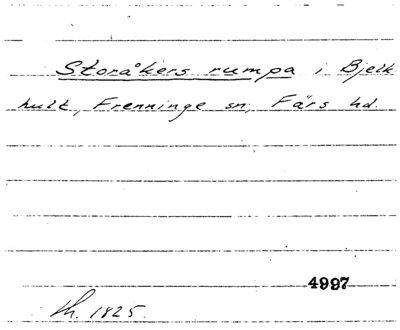 Storåkers rumpa i Bjelk
hult, Frenninge sn, Färs hd.
4997
Kh. 1825.